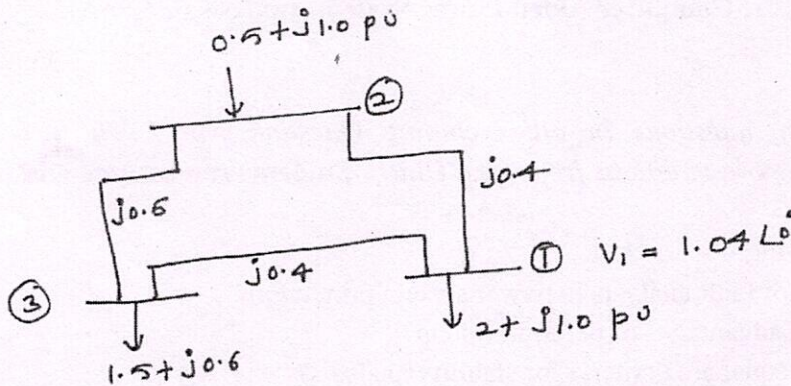 0.5+j1.0 pu
2
j0.4
j0.6
j0.4
1 V₁ = 1.04∠0°
3
2+j1.0 pu
1.5+j0.6